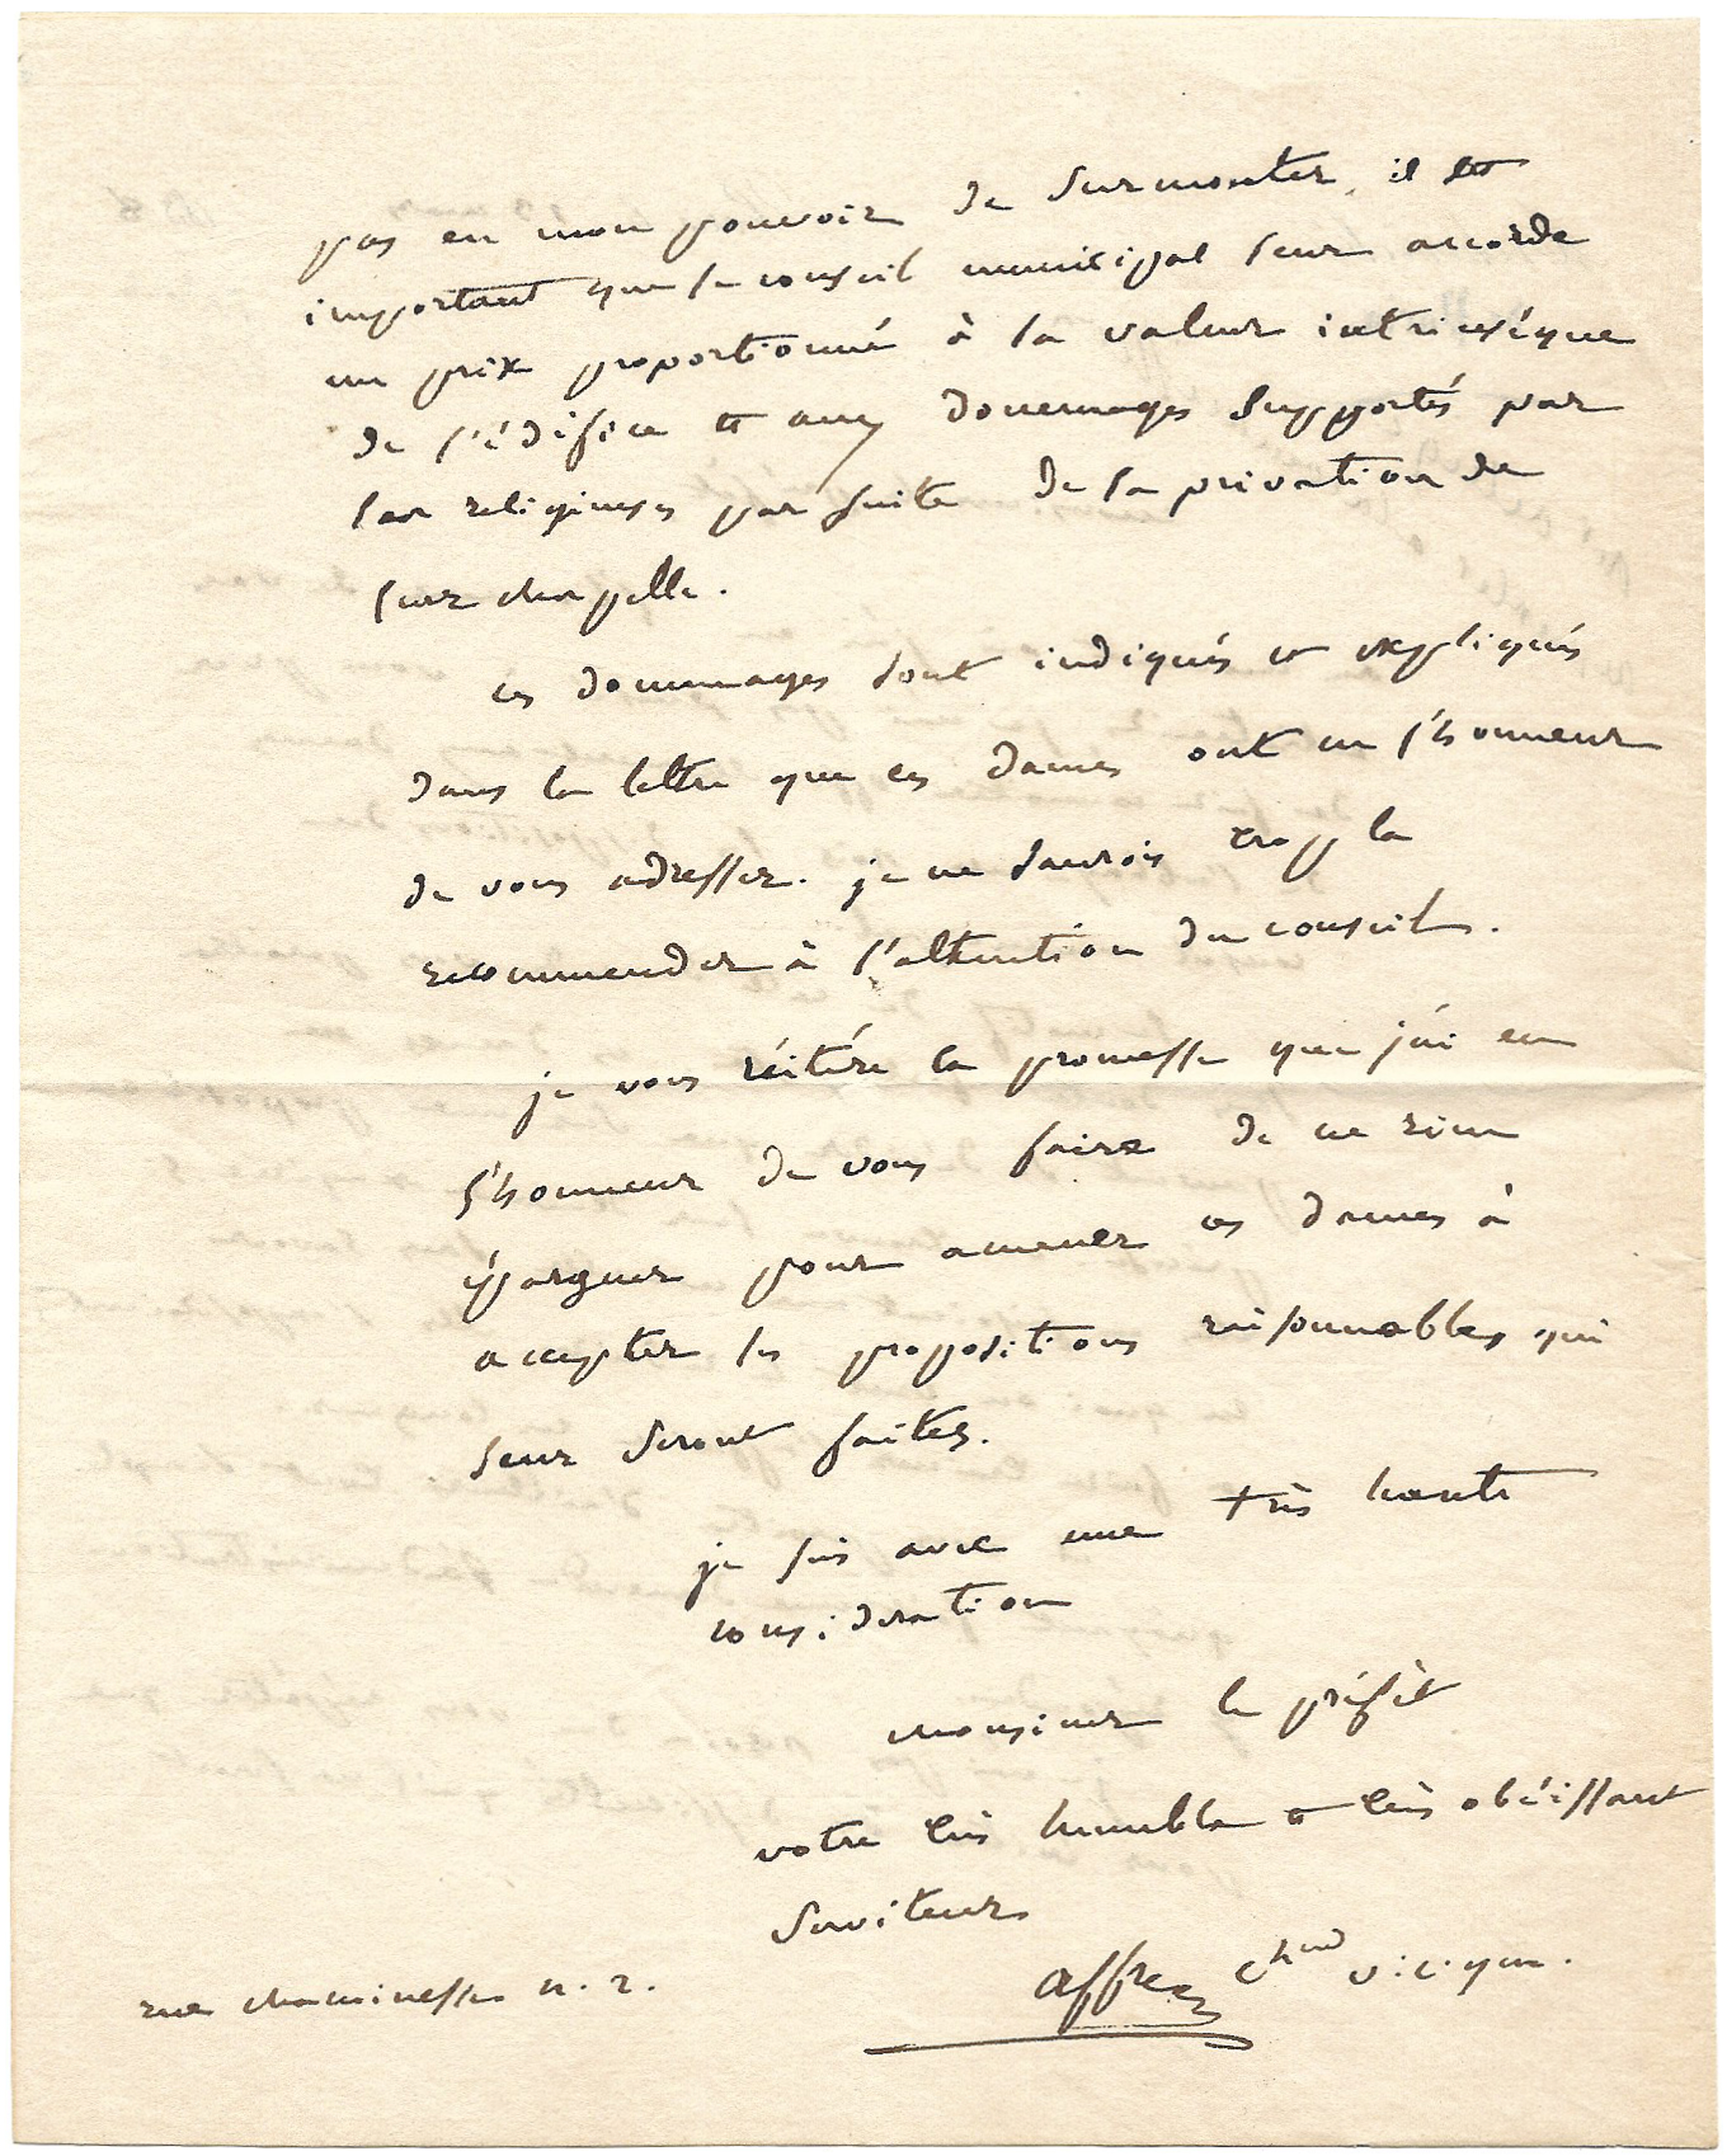 pas en mon pouvoir de surmonter, il est
important que le conseil municipal leur accorde
un prix proportionné à la valeur intrinsèque
de l'édifice et aux dommages supportés par
les religieuses par suite de la privation de
leur chapelle.
ces dommages sont indiqués et expliqués
dans la lettre que ces dames ont eu l'honneur
de vous adresser. je ne saurois trop la
recommender à l'attention du conseil.
je vous réitére la promesse que j'ai eu
l'honneur de vous faire de ne rien
épargner pour amener ces dames à
accepter les propositions raisonnables qui
leur seront faites.
je suis avec une très haute
considération
monsieur le préfèt
votre très humble et très obéissant
serviteur
affre ch
rue chanoinesse n. 2.